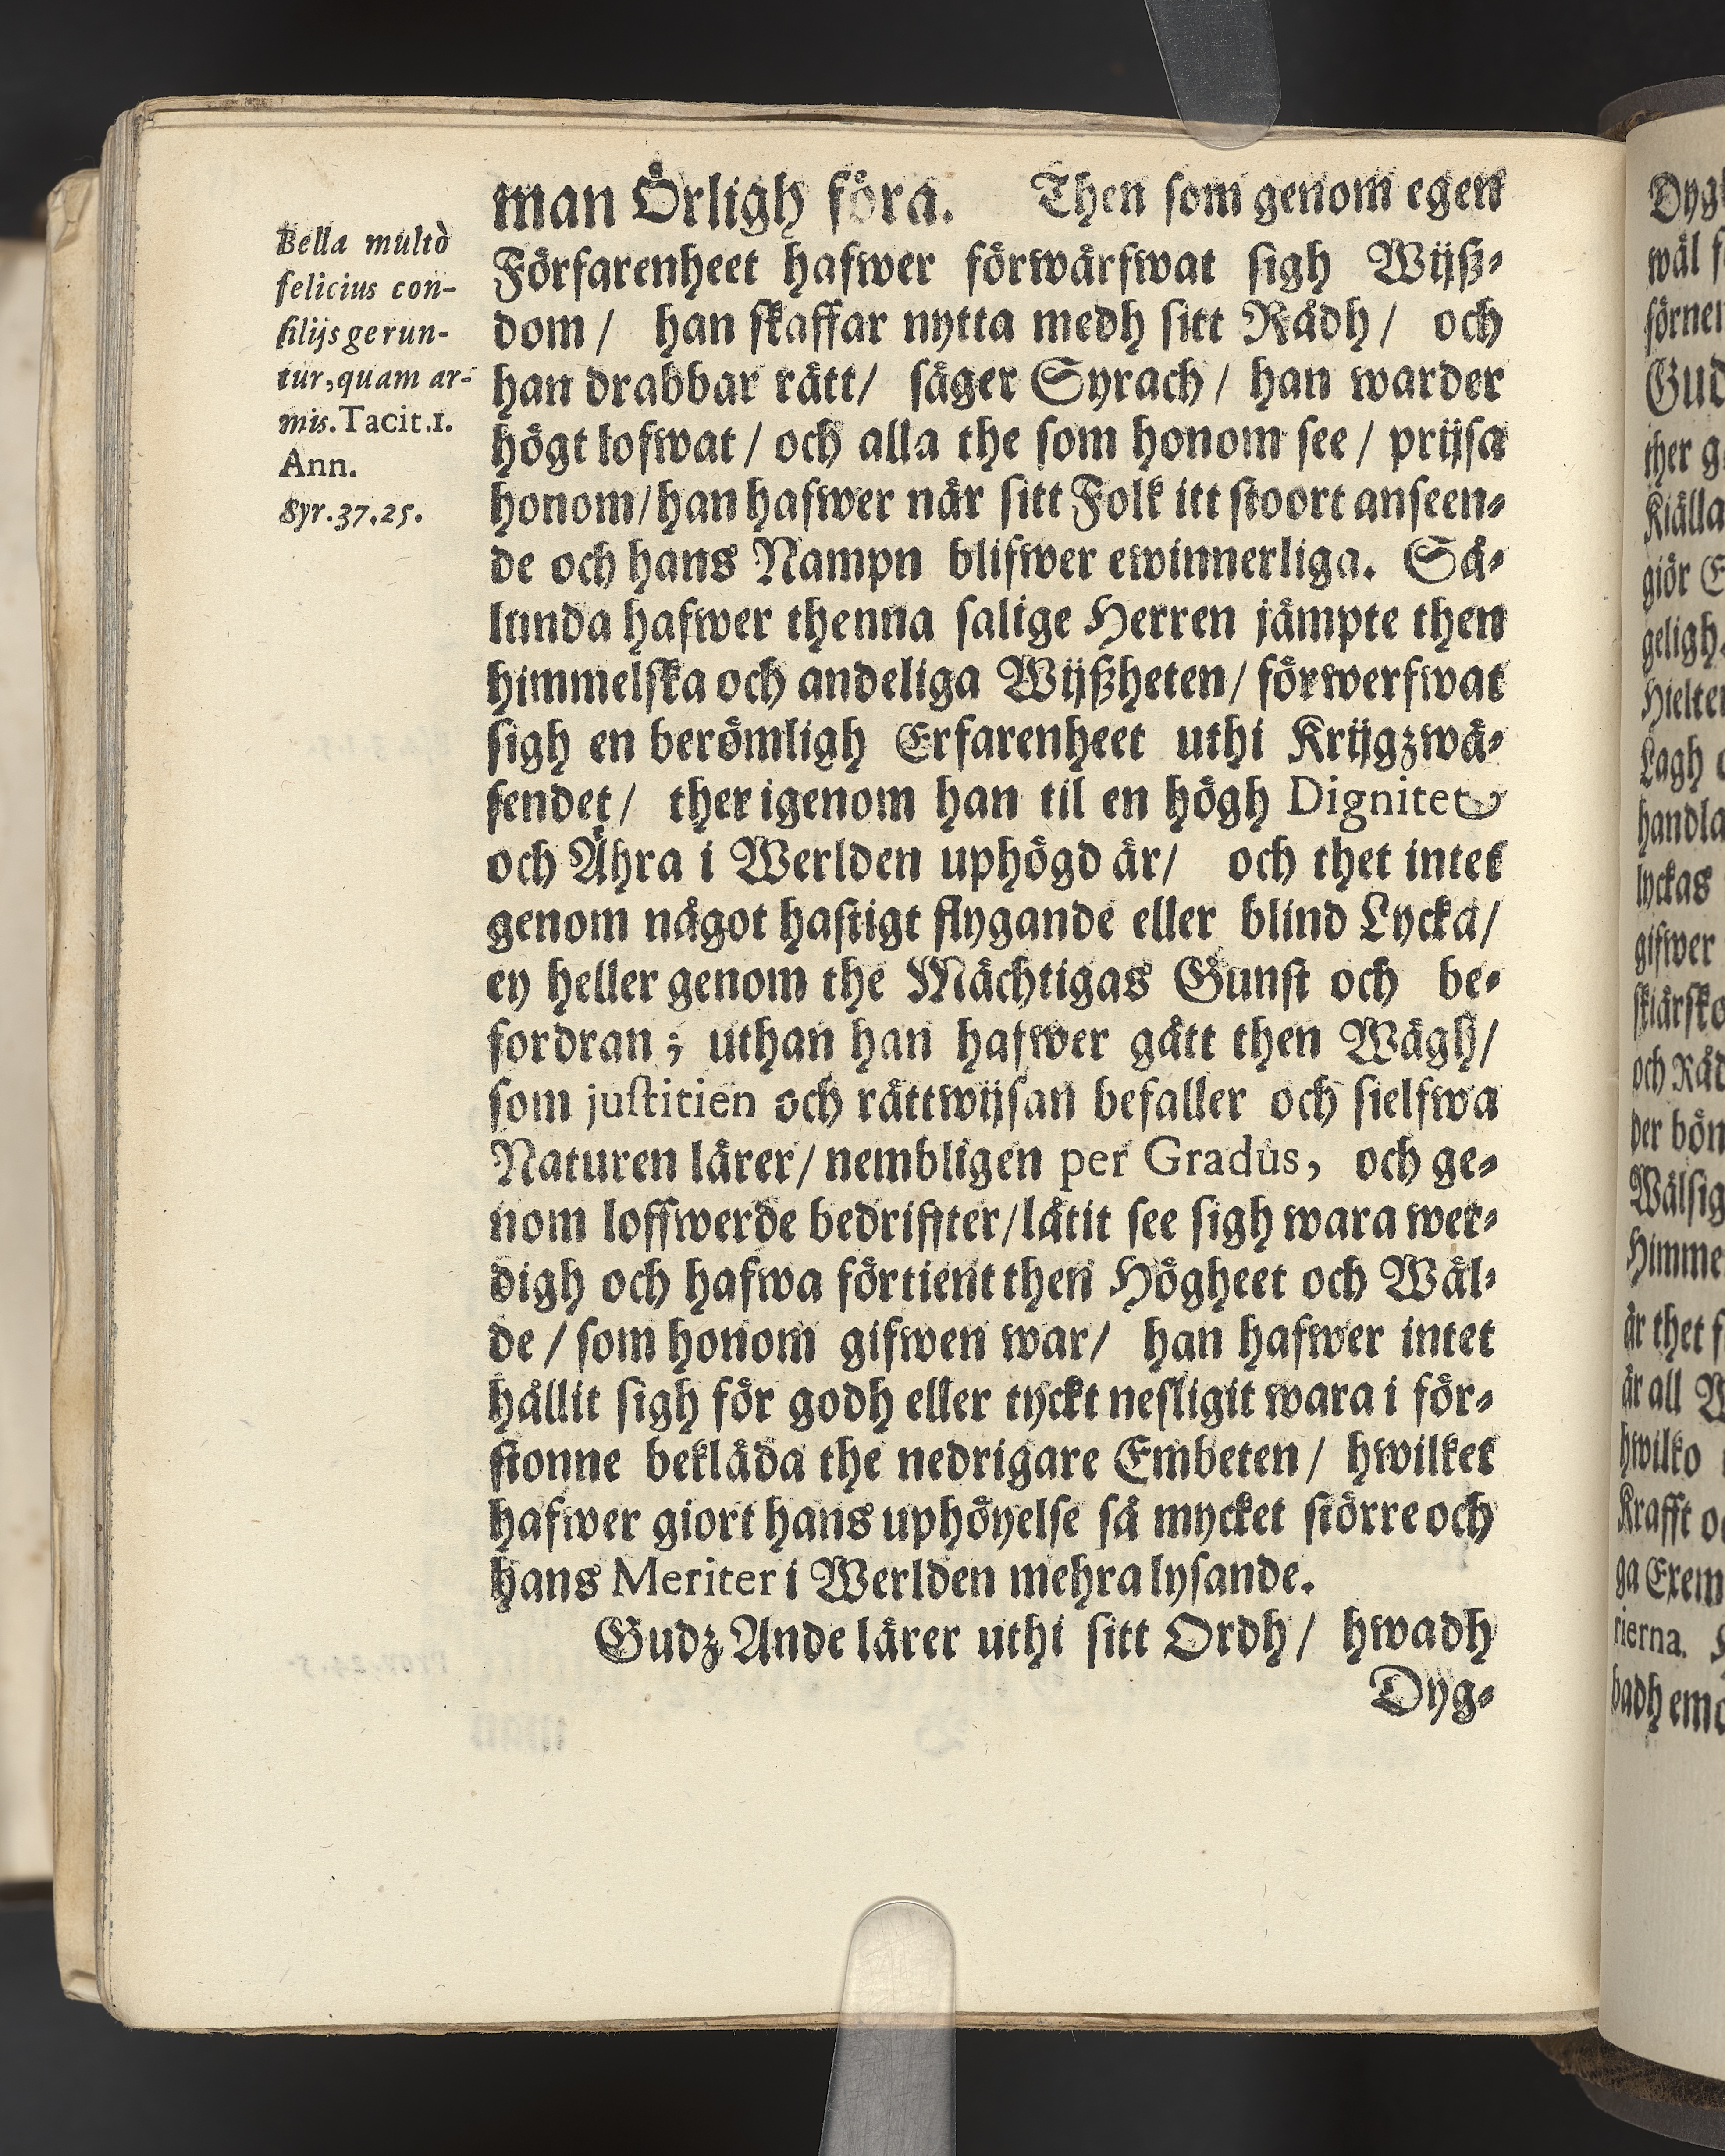 Bella multò
felicius con-
silijs gerun-
tur, quam ar-
mis. Tacit. 1.
Ann.
Syr. 37. 25.
man Örligh föra. Then som genom egen
Förfarenheet hafwer förwärfwat sigh Wijß-
dom / han skaffar nytta medh sitt Rådh / och
han drabbar rätt / säger Syrach / han warder
högt lofwat / och alla the som honom see / prijsa
honom / han hafwer när sitt Folk itt stoort anseen-
de och hans Nampn blifwer ewinnerliga. Så-
lunda hafwer thenna salige Herren jämpte then
himmelska och andeliga Wijßheten / förwerfwat
sigh en berömligh Erfarenheet uthi Krijgzwä-
sendet / ther igenom han til en högh Dignitet
och Ähra i Werlden uphögd är / och thet intet
genom något hastigt flygande eller blind Lycka /
ey heller genom the Mächtigas Gunst och be-
fordran ; uthan han hafwer gått then Wägh /
som justitien och rättwijsan befaller och sielfwa
Naturen lärer / nembligen per Gradus, och ge-
nom loffwerde bedriffter / låtit see sigh wara wer-
digh och hafwa förtient then Högheet och Wäl-
de / som honom gifwen war / han hafwer intet
hållit sigh för godh eller tyckt nesligit wara i för-
stonne bekläda the nedrigare Embeten / hwilket
hafwer giort hans uphöyelse så mycket större och
hans Meriter i Werlden mehra lysande.
Gudz Ande lärer uthi sitt Ordh / hwadh
Dyg-